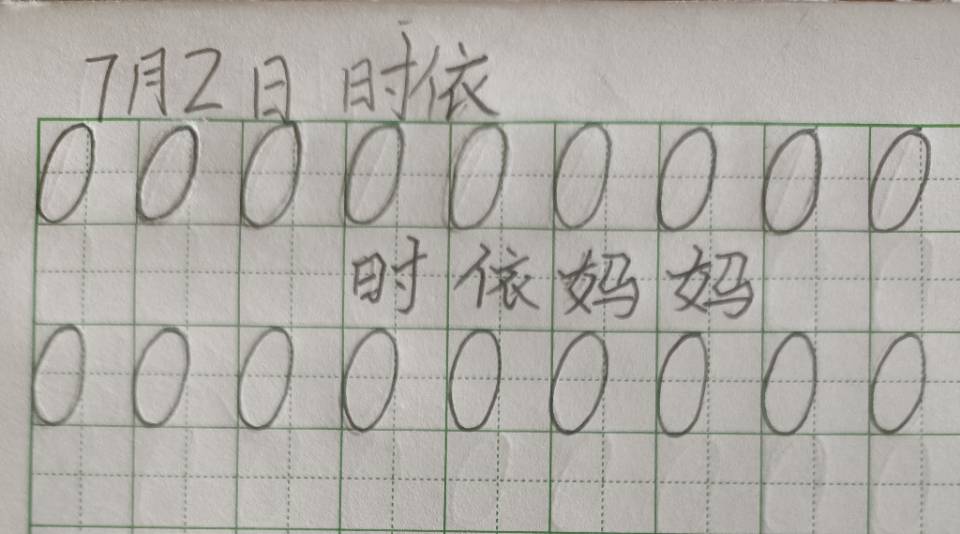 7月2日 时依
0 0 0 0 0 0 0 0 0
时依妈妈
0 0 0 0 0 0 0 0 0